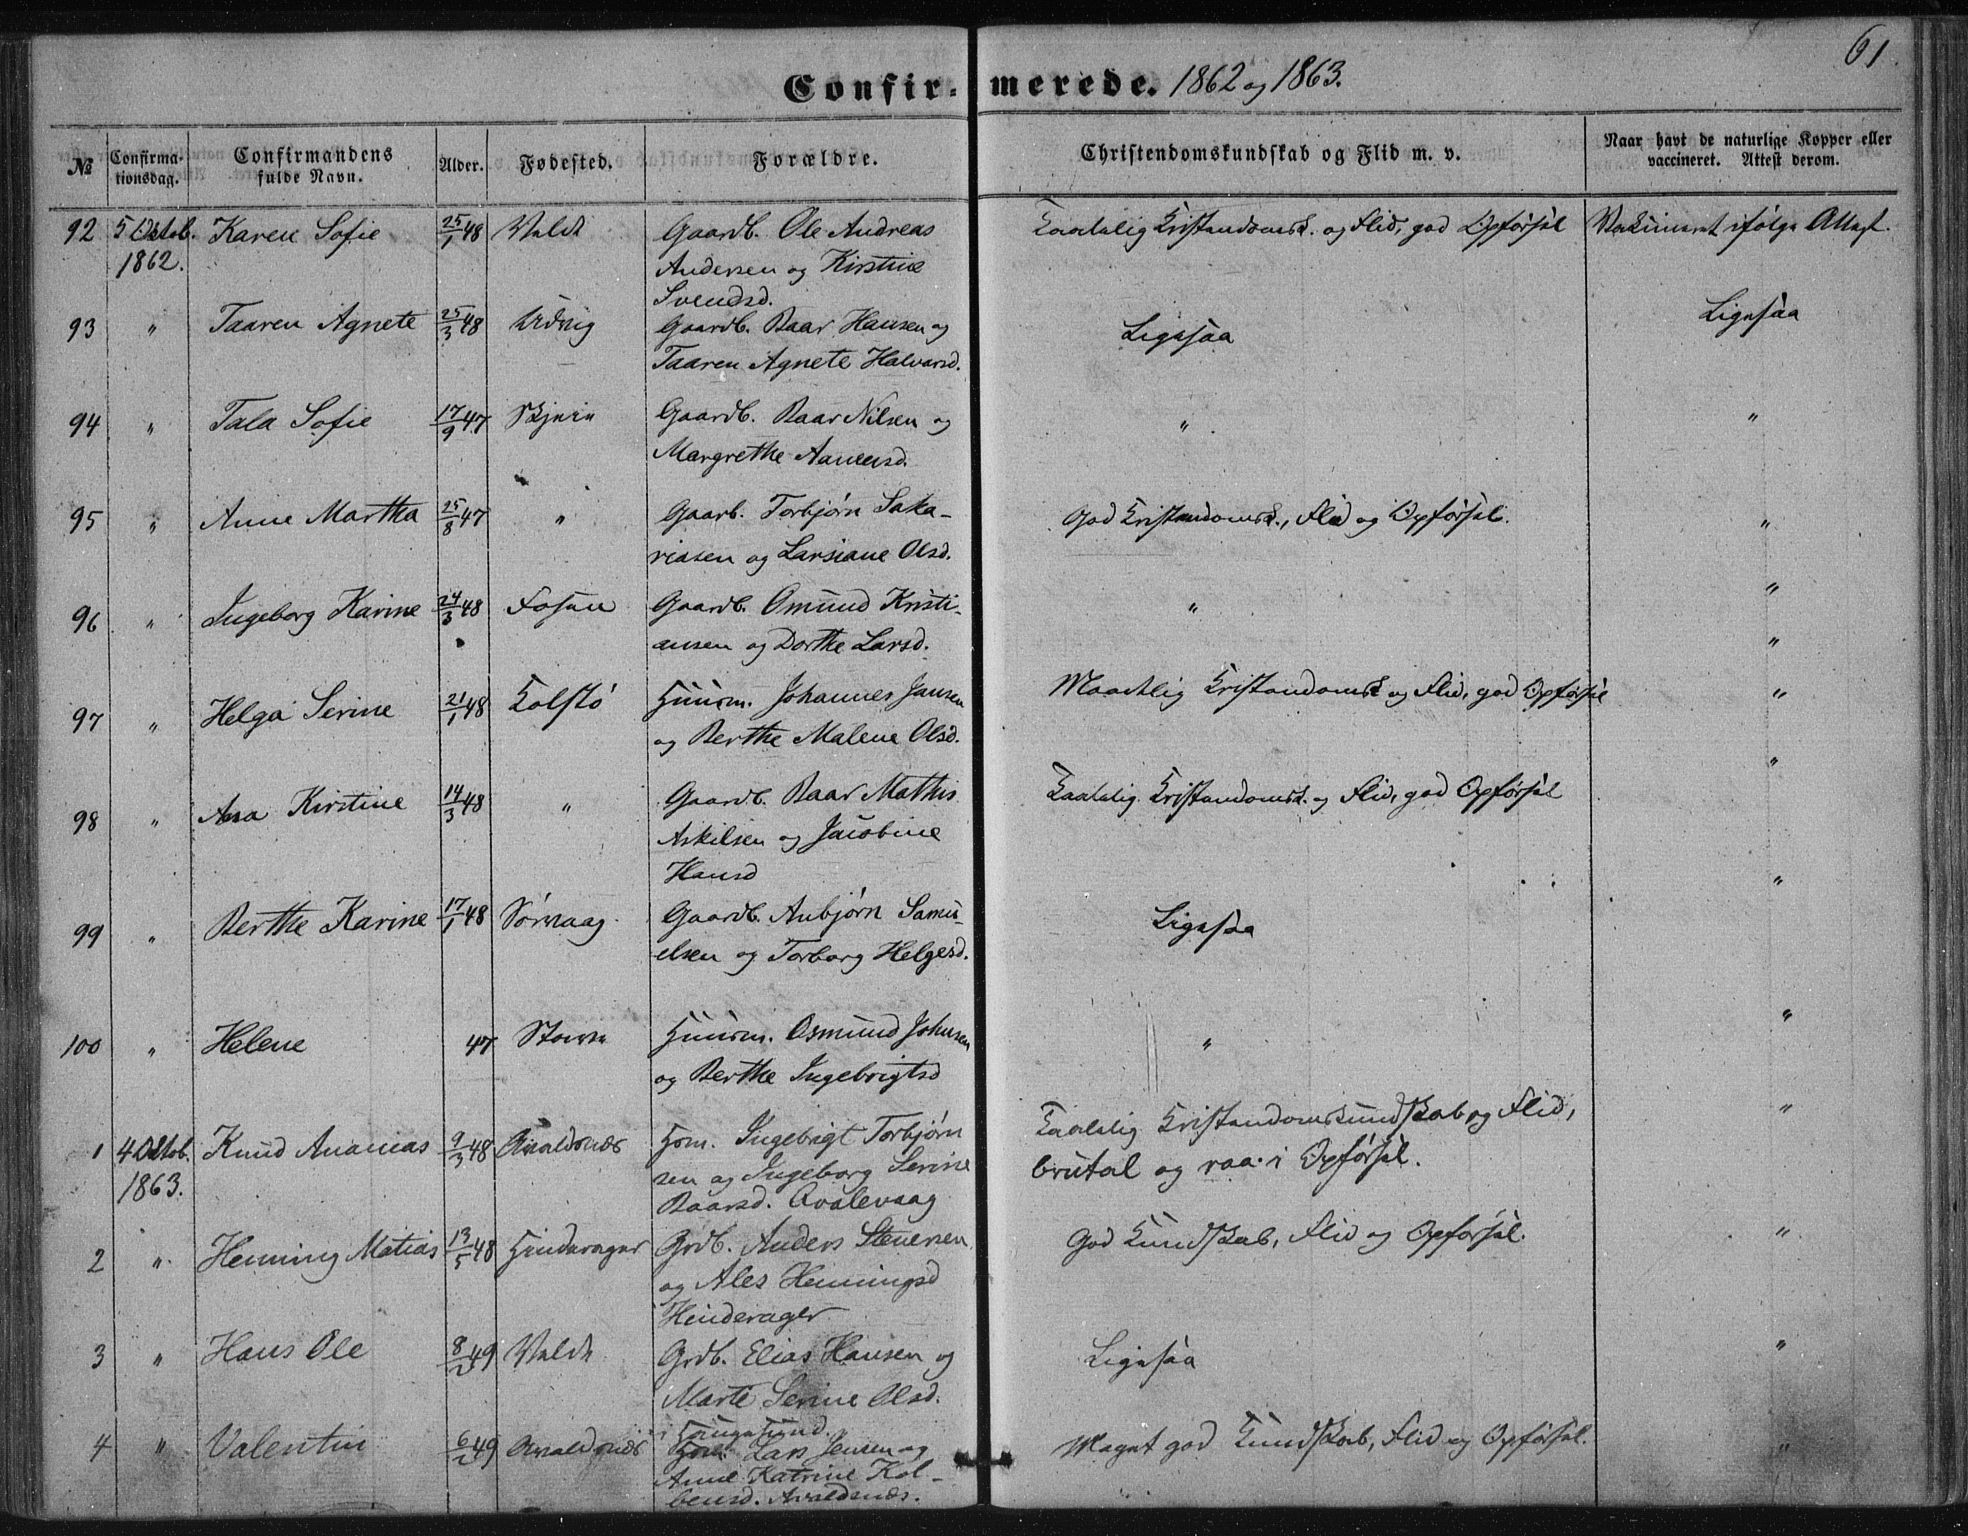 61.
Confir- merede. 1862 og 1863.
№ Confirma- tionsdag. Confirmandens fulde Navn. Alder. Fødested. Forældre. Christendomskundskab og Flid m. v. Naar havt de naturlige Kopper eller vaccineret. Attest derom.
92 5 Oktob. Karen Sofie 25/1 48 Gaardb. Ole Andreas Taalelig Kristendomsk. og Flid, god Opførsel Vakcineret ifølge Attest.
1862. Andersen og Kirstine
Svendsd.
93 " Taaren Agnete 25/3 48 Udvig Gaardb. Baar Hansen og Ligesaa Ligesaa
Taaren Agnete Halvarsd.
94 " Tala Sofie 17/9 47 Gaardb. Baar Nilsen og " "
Margrethe Aanensd.
95 " Anne Martha 25/8 47 " Gaarb. Torbjørn Saka- God Kristendomsk., Flid og Opførsel. "
riasen og Larsiane Olsd.
96 " Ingeborg Karine 24/3 48 Fosen Gaardb. Omund Kristi- " "
ansen og Dorthe Larsd. "
97 " Helga Serine 21/1 48 Kolstø Huusm. Johannes Jansen Maadelig Kristendomsk og Flid, god Opførsel "
og Berthe Malene Olsd.
98 " Asa Kirstine 14/3 48 " Gaardb. Baar Mathis Taalelig Kristendomsk. og Flid, god Opførsel "
Askilsen og Jacobine
Hansd "
99 " Berthe Karine 17/1 48 Sørvaag Gaardb. Anbjørn Samu- Ligesaa
elsen og Torborg Helgesd.
100 " Helene 47 Huusm. Osmund Johnsen " "
og Berthe Ingebrigtsd
1 4 Oktob. Knud Ananias 9/3 48 Avaldsnæs Hsm. Ingebrigt Torbjørn Taalelig Kristendomskundskab og Flid, "
1863. sen og Ingeborg Serine brutal og raa i Opførsel.
Baarsd. Avalevaag
2 " Henning Matias 13/5 48 Hinderager Grdb. Anders Stenersen God Kundskab, Flid og Opførsel. "
og Ales Henningsd
Hinderager
3 " Hans Ole 49 Grdb. Elias Hansen og Ligesaa "
Marte Serine Olsd.
i Haugesund.
4 " Valentin 49 Avaldsnæs Lars Jensen og Meget god Kundskab, Flid og Opførsel. "
Anne Katrine Kol-
bensd. Avaldsnæs.